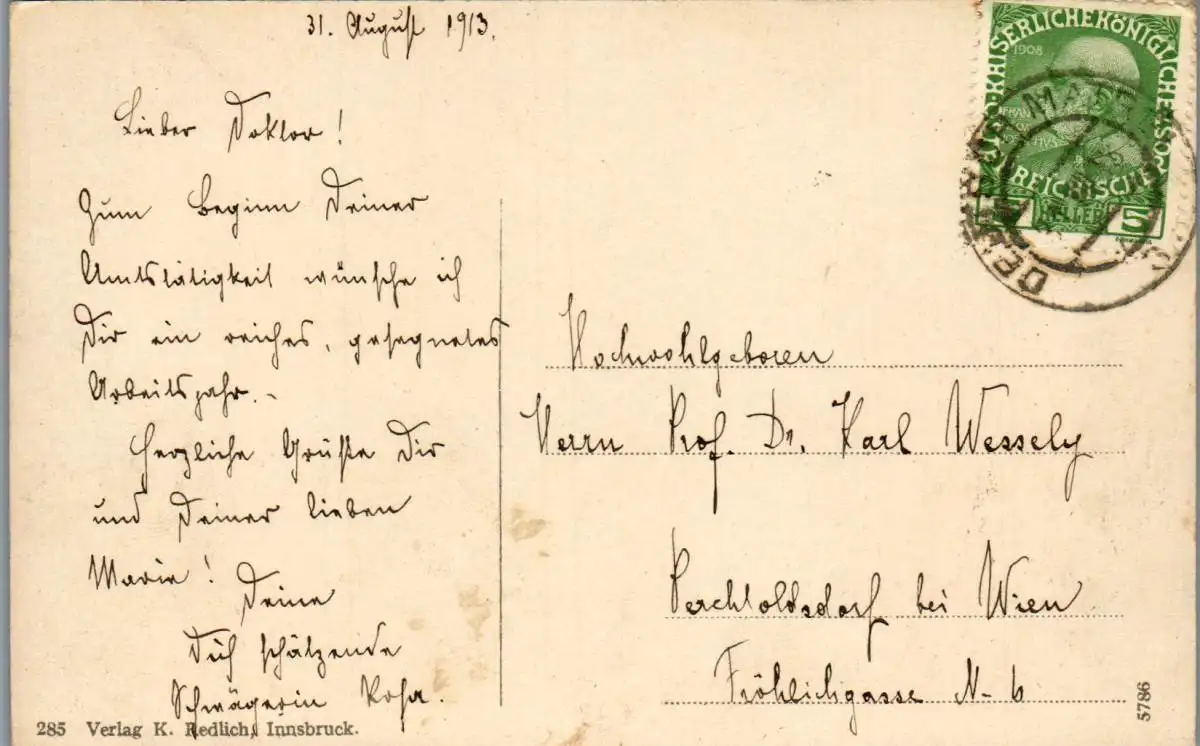 31. August 1913.
Lieber Doktor!
Zum Beginn Deiner
Amtstätigkeit wünsche ich
Dir ein reiches, gesegnetes
Arbeitsjahr. –
Herzliche Grüße Dir
und Deiner lieben
Marie!
Deine
Dich schätzende
Schwägerin Rosa.
285 Verlag K. Redlich, Innsbruck.
KAISERLICHEKÖNIGLICHE
1908
REICHISCHE
HELLER
5
Hochwohlgeboren
Herrn Prof. Dr. Karl Wessely
Perchtoldsdorf bei Wien
Fröhlichgasse N– 6
5786